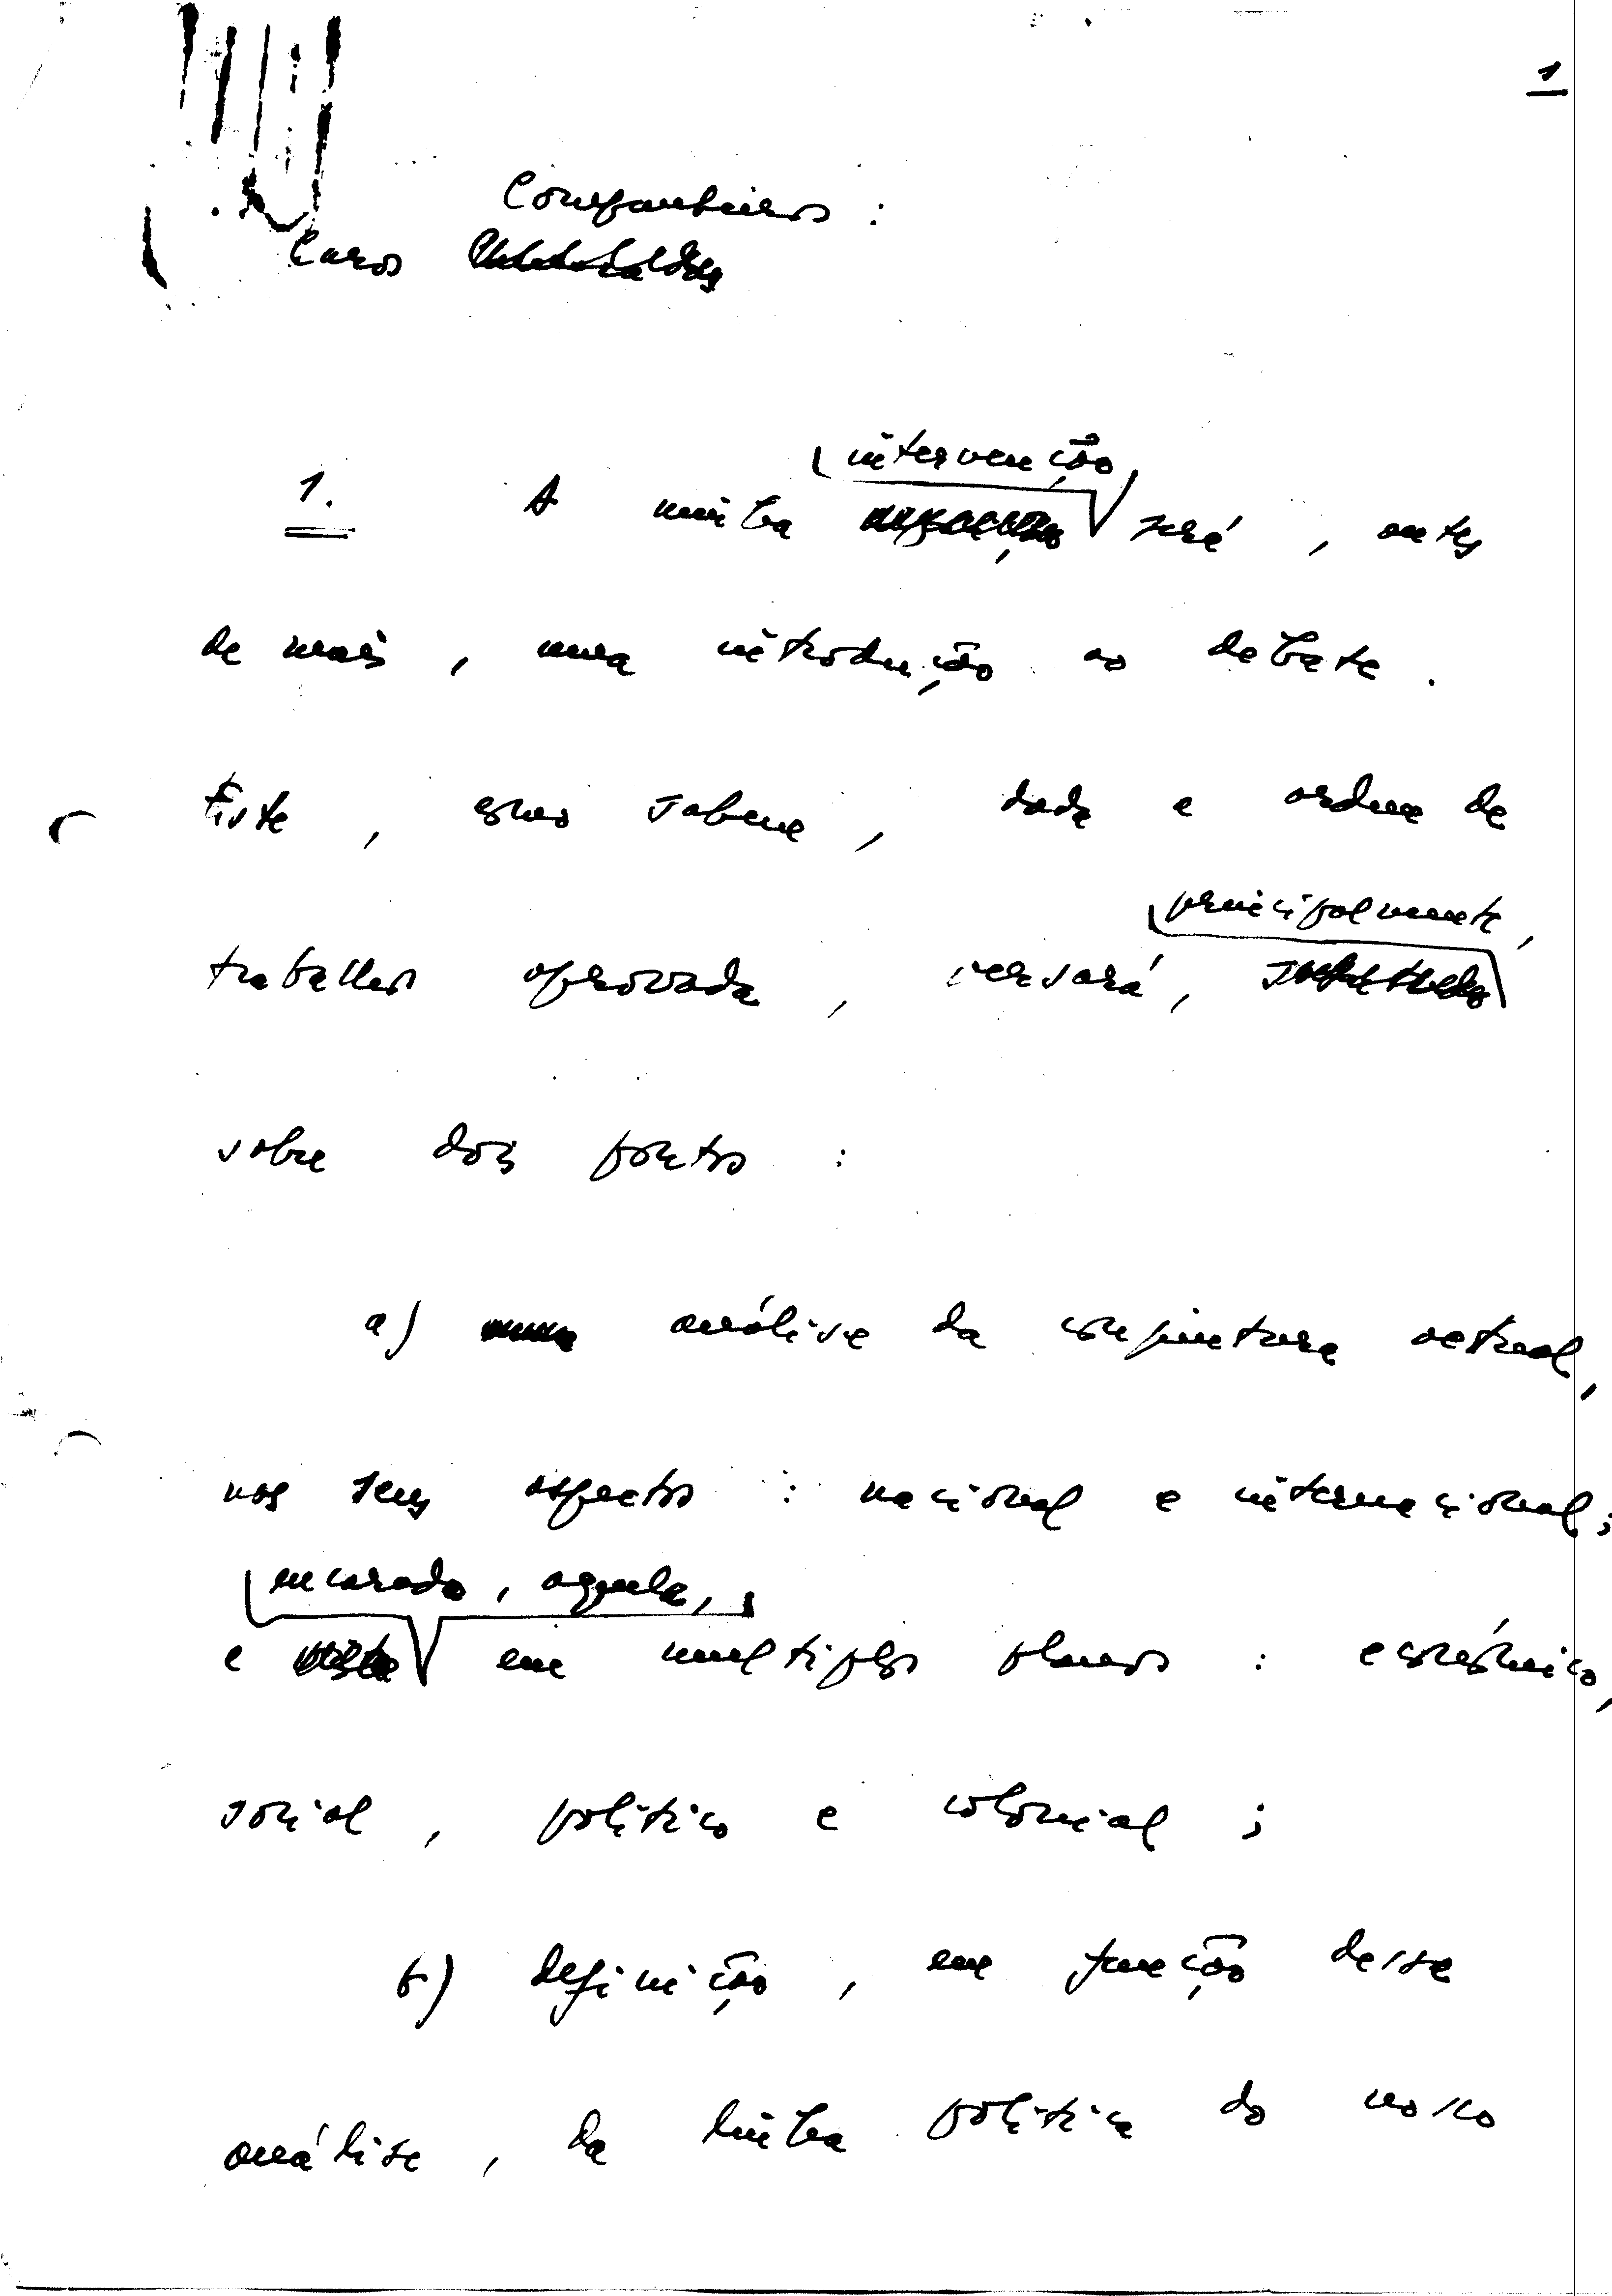 1
Companheiros :
Caros
intervenção
1. A minha será , antes
de mais , uma introdução ao debate .
Este , como sabem , dada a ordem de
principalmente,
trabalhos aprovada , versará ,
sobre dois pontos :
a) uma análise da conjuntura actual,
nos seus aspectos : nacional e internacional;
encarada, aquela,
e vista em multiplos planos : económico,
social , político e colonial ;
b) definição , em função dessa
análise , da linha política do nosso